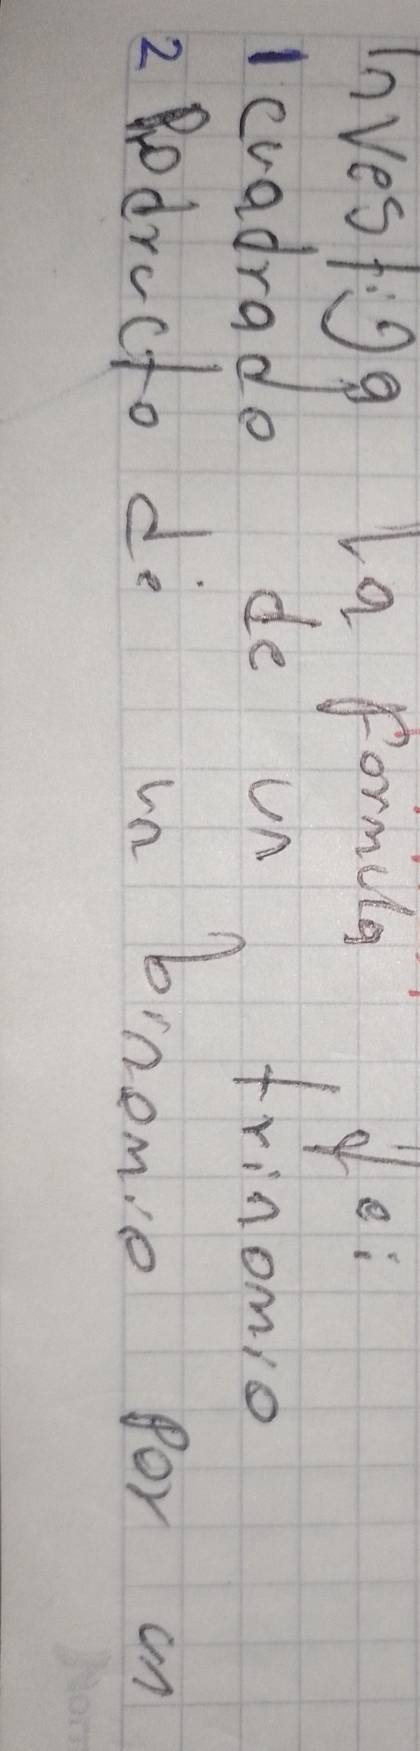 Investiga la formula de:
1 cuadrado de un trinomio
2 Producto de un binomio por un